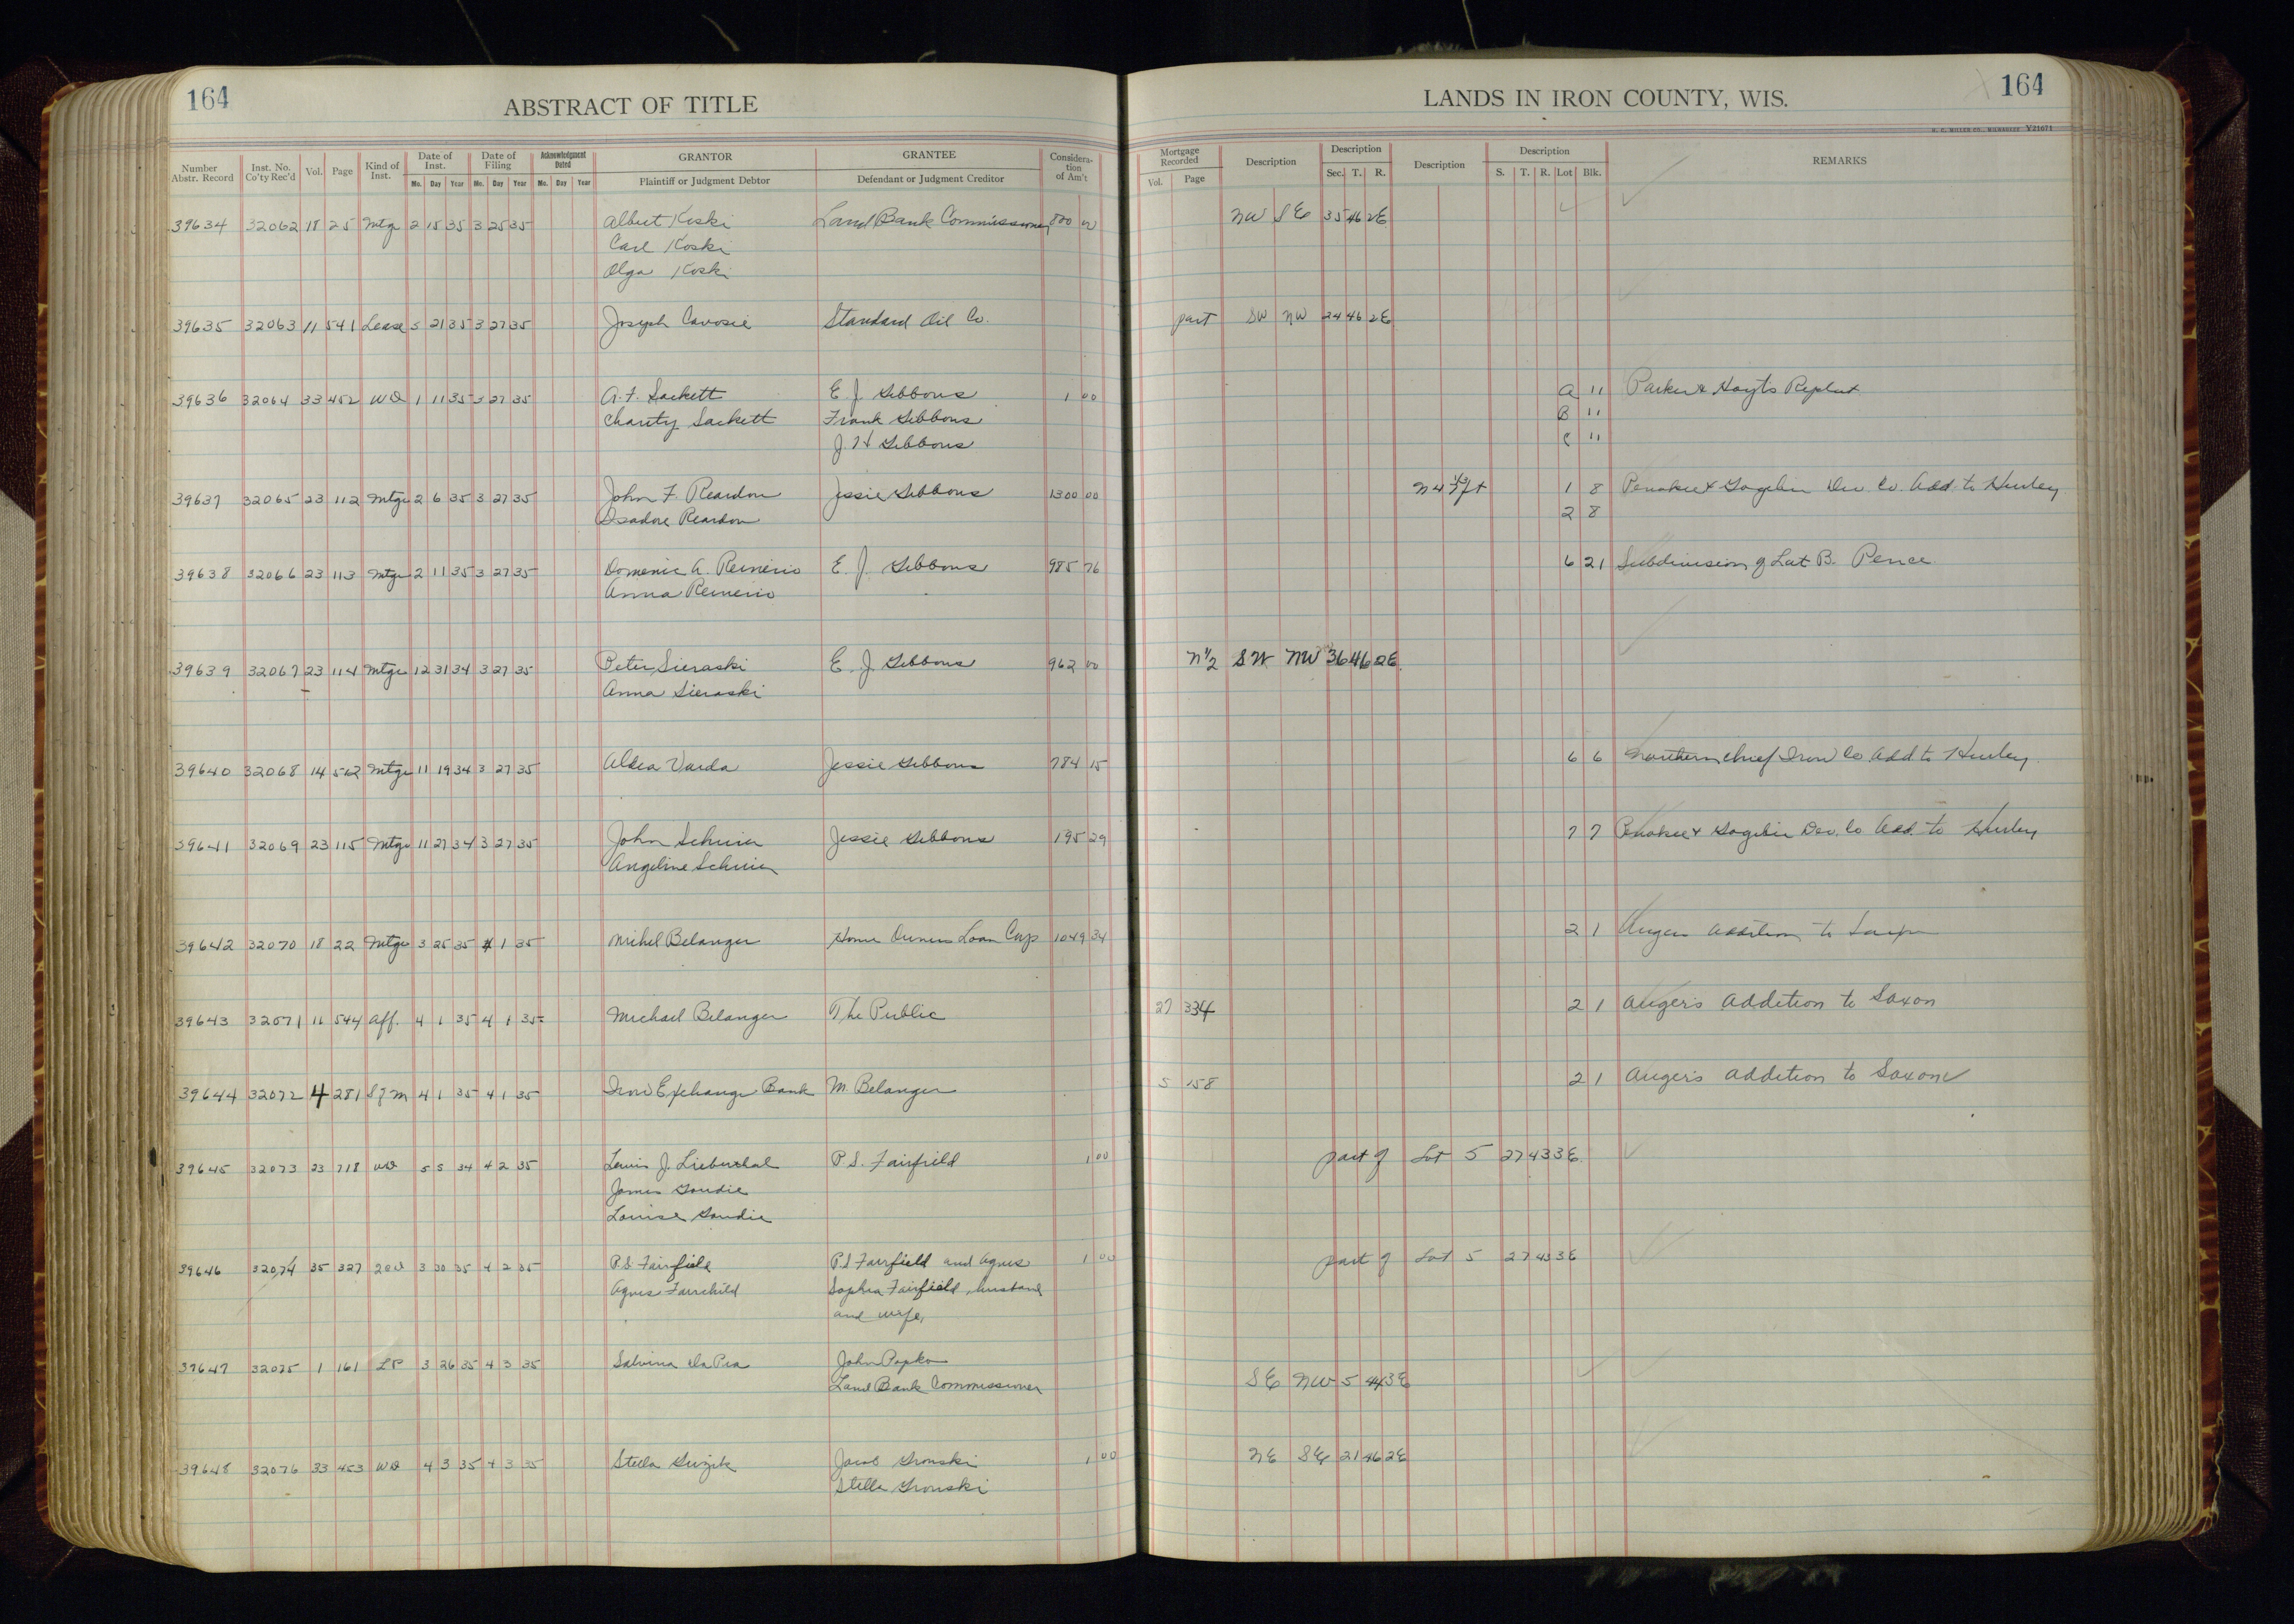 164
ABSTRACT OF TITLE
LANDS IN IRON COUNTY, WIS.
164
H. C. MILLER CO., MILWAUKEE V21671
Number Abstr. Record Inst. No. Co'ty Rec'd Vol. Page Kind of Inst. Date of Inst. Mo. Day Year Date of Filing Mo. Day Year Acknowledgment Dated Mo. Day Year GRANTOR Plaintiff or Judgment Debtor GRANTEE Defendant or Judgment Creditor Consideration of Am't Mortgage Recorded Vol. Page Description Description Sec. T. R. Description Description S. T. R. Lot Blk. REMARKS
39634 32062 18 25 Mtg 2 15 35 3 25 35 Albert Koski Land Bank Commissioner 800 00 NW SE 35 46 2E
Carl Koski
Olga Koski
39635 32063 11 541 Lease 3 27 35 Joseph Cavosie Standard Oil Co. part SW NW 24 46 2E
39636 32064 33 452 WD 1 11 35 3 27 35 A. F. Sackett E. J. Gibbons 1 00 A 11 Parker & Hoyts Replat
Charity Sackett Frank Gibbons B 11
J. H Gibbons C 11
39637 32065 23 112 Mtge 2 6 35 3 27 35 John F. Reardon Jessie Gibbons 1300 00 1 8 Penokee & Gogebic Dev. Co. Add. to Hurley
Isadore Reardon 2 8
39638 32066 23 113 Mtge 2 11 35 3 27 35 Domenic A. Reinerio E. J. Gibbons 985 76 6 21 Subdivision of Lot B. Pence
Anna Reinerio
39639 32067 23 114 Mtge 12 31 34 3 27 35 Peter Sieraski E. J. Gibbons 962 00 N 1/2 SW NW 36 46 2E
Anna Sieraski
39640 32068 14 562 Mtge 11 19 34 3 27 35 Varda Jessie Gibbons 784 15 6 6 Northern Chief Iron Co Add to Hurley
39641 32069 23 115 Mtge 11 27 34 3 27 35 John Jessie Gibbons 195 29 7 7 Penokee & Gogebic Dev. Co Add. to Hurley
Angeline
39642 32070 18 22 Mtge 3 25 35 4 1 35 Michel Belanger Home Owners Loan Corp 1049 34 2 1 Augers Addition to
39643 32071 11 544 Aff. 4 1 35 4 1 35 Michael Belanger The Public 27 334 2 1 Auger's Addition to Saxon
39644 32072 4 281 S of M 4 1 35 4 1 35 Iron Exchange Bank M. Belanger 5 158 2 1 Auger's Addition to Saxon
39645 32073 23 718 WD 5 5 34 4 2 35 Lewis J. P. S. Fairfield 1 00 part of Lot 5 27 43 3E
James Goudie
Louise Goudie
39646 32074 35 327 2CD 3 30 35 4 2 35 P.S. Fairfield P.S Fairfield and Agnes 1 00 part of Lot 5 27 43 3E
Agnes Fairchild Sophia Fairfield, husband
and wife,
39647 32075 1 161 LP 3 26 35 4 3 35 Salvina Da Pra John Popko
Land Bank Commissioner SE NW 5 44 3E
39648 32076 33 453 WD 4 3 35 4 3 35 Stella Guzik Jacob Gronski 1 00 NE SE 21 46 2E
Stella Gronski